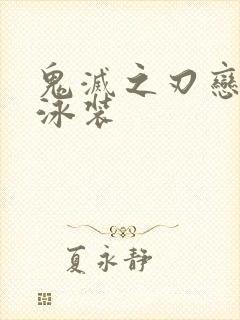 鬼滅之刃戀
泳裝
夏永靜